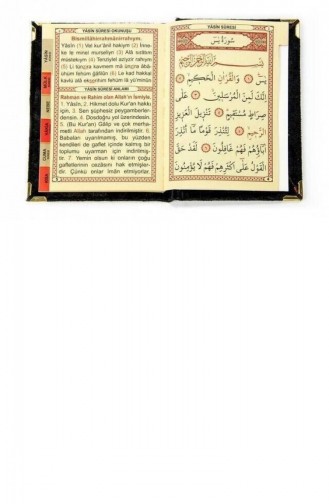 YÂSİN SÛRESİ-OKUNUŞU
Bismillâhirrahmânirrahıym.
Yâsîn (1) Vel kur'ânil hakıym (2) İnne-
ke le minel murseliyn (3) Alâ sırâtım
mustekıym (4) Tenziylel aziyzir rahıym
(5) Li tunzira kavmem mâ unzira âbâ-
uhum fehum ğâfilûn (6) Le kad hakkal
kavlu alâ ekserihim fehum lâ yu'minûn
YÂSİN SÛRESİ-ANLAMI
Rahman ve Rahim olan Allah'ın İsmiyle,
1. Yâsin, 2. Hikmet dolu Kur'an hakkı
için, 3. Sen şüphesiz peygamberler-
densin. 4. Dosdoğru yol üzerindesin.
5. (Bu Kur'an) Gâlip ve çok merha-
metli Allah tarafından indirilmiştir. 6.
Babaları uyarılmamış, bu yüzden
kendileri de gaflet içinde kalmış bir
toplumu uyarman için indirilmiş-
tir. 7. Yemin olsun ki onların çoğu
gafletlerinin cezasını hak etmişler-
dir. Çünkü onlar îmân etmiyorlar.
YÂSİN
CUMA
YÂSİN SÛRESİ
سُورَةُ يٰسٓ
بِسْمِ اللهِ الرَّحْمٰنِ الرَّحِيمِ
يٰسٓ ۞ وَالْقُرْاٰنِ الْحَكِيمِ ۞
اِنَّكَ لَمِنَ الْمُرْسَلِينَ ۞ عَلٰى
صِرَاطٍ مُسْتَقِيمٍ ۞ تَنْزِيلَ الْعَزِيزِ
الرَّحِيمِ ۞ لِتُنْذِرَ قَوْمًا مَٓا اُنْذِرَ
اٰبَٓاؤُهُمْ فَهُمْ غَافِلُونَ ۞ لَقَدْ حَقَّ
الْقَوْلُ عَلٰٓى اَكْثَرِهِمْ فَهُمْ لَا يُؤْمِنُونَ